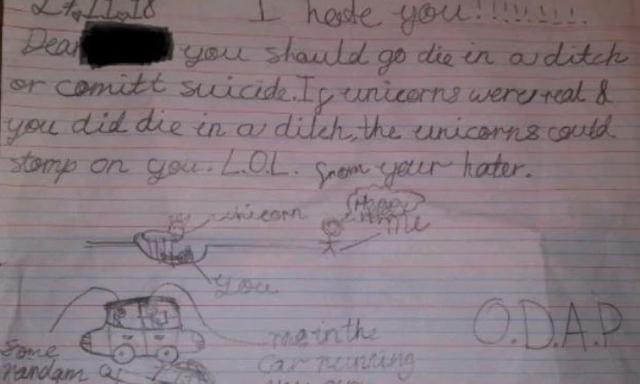 I hate you!!!!!!!!!
Dear you should go die in a ditch
or comitt suicide. If unicorns were real &
you did die in a ditch, the unicorns could
stomp on you. L.O.L. from your hater.
unicorn
Happy
Me
You
O.D.A.P
me in the
some
car running
randam